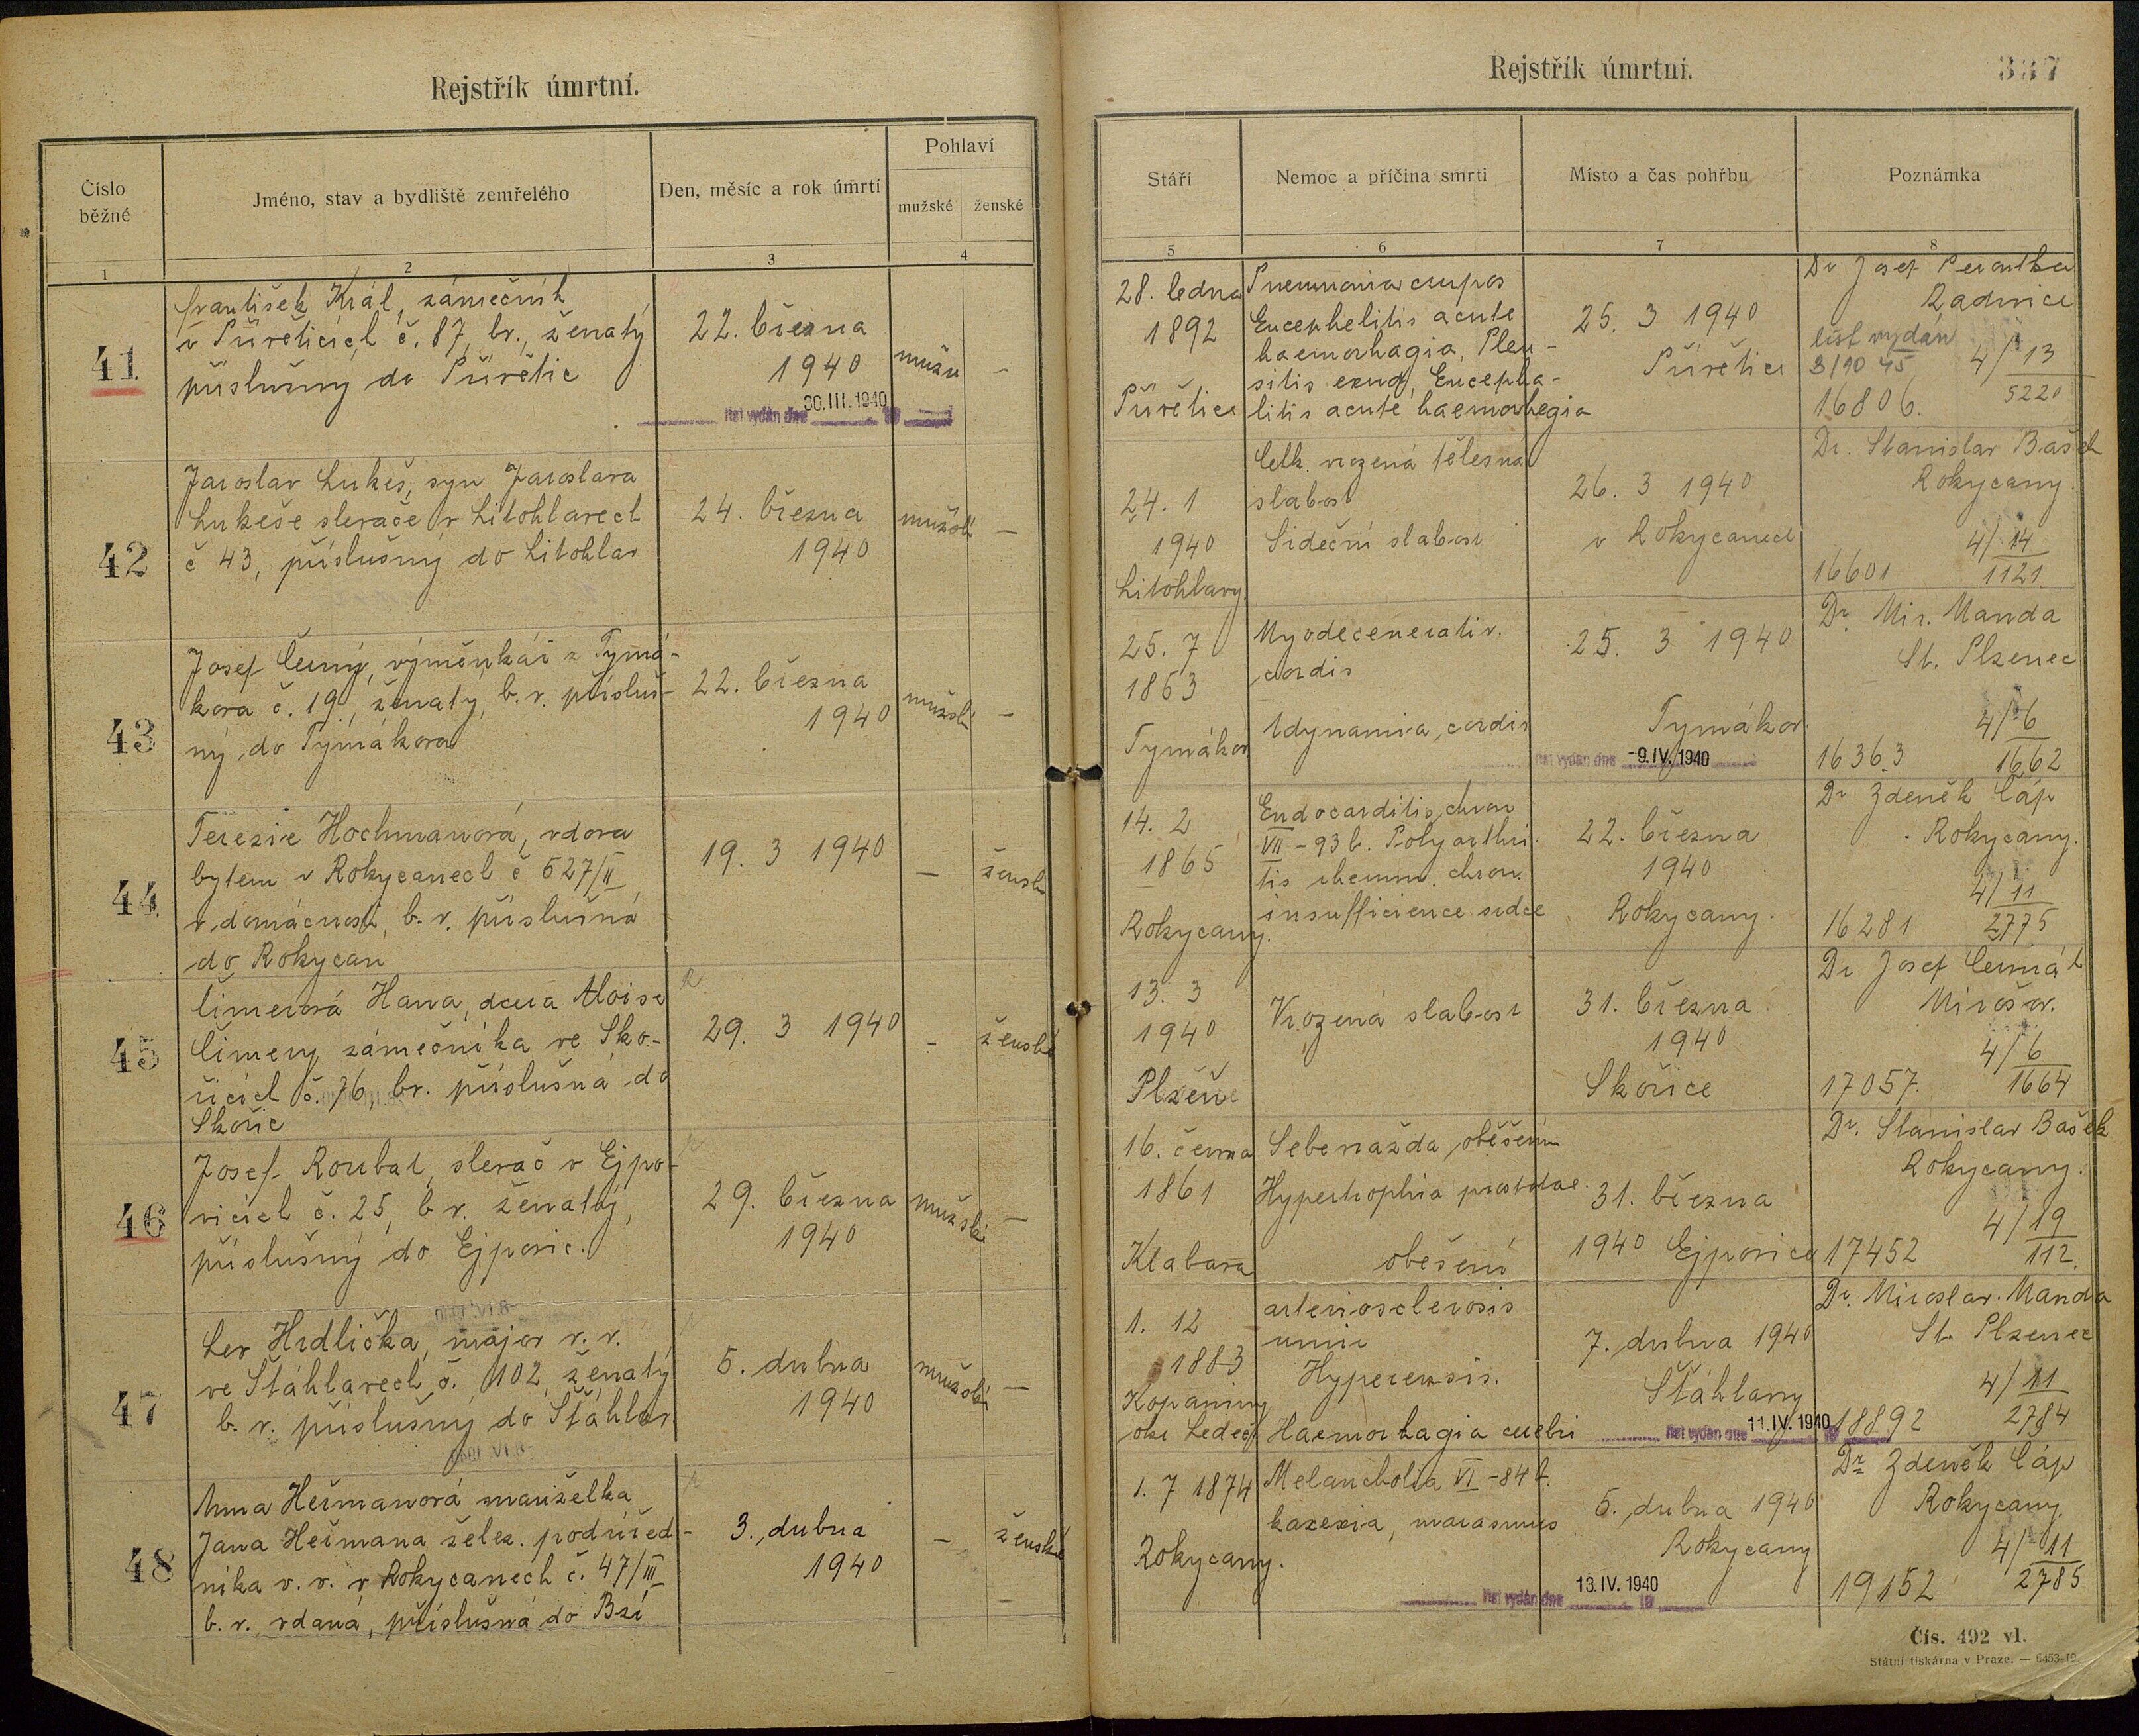 Rejstřík úmrtní.
Číslo běžné
Jméno, stav a bydliště zemřelého
Den, měsíc a rok úmrtí
Pohlaví
mužské
ženské
1
2
3
4
41
František Král, zámečník
v Přívěticích č. 87, bv., ženatý
příslušný do Přívětic
22. března
1940
mužs
-
list vydán dne 30.III.1940 19
42
Jaroslav Lukeš, syn Jaroslava
Lukeše slevače v Litohlavech
č 43, příslušný do Litohlav
24. března
1940
mužské
-
43
Josef Černý, výměnkář z Tymá-
kova č. 19, ženatý, b. v. přísluš-
ný do Tymákova
22. března
1940
mužské
-
44
Terezie Hochmanová, vdova
bytem v Rokycanech č 627/II
v domácnosti, b. v. příslušná
do Rokycan
19. 3 1940
-
žensk
45
Čimerová Hana, dcera Aloise
Čimery, zámečníka ve Sko-
řicích č. 76, bv. příslušná do
Skořic
29. 3 1940
-
ženské
46
Josef Roubal, slevač v Ejpo-
vicích č. 25, b. v. ženatý,
příslušný do Ejpovic.
29. března
1940
mužské
-
47
Lev Hrdlička, major v. v.
ve Šťáhlavech č. 102, ženatý
b. v. příslušný do Šťáhlav.
5. dubna
1940
mužské
-
48
Anna Heřmanová manželka
Jana Heřmana želez. podúřed-
níka v. v. v Rokycanech č. 47/III
b. v. vdaná, příslušná do Bzí
3. dubna
1940
-
ženské
-
Rejstřík úmrtní.
337
Stáří
Nemoc a příčina smrti
Místo a čas pohřbu
Poznámka
5
6
7
8
28. ledna
1892
Přívětice
Pneumonia crupos
Encephelitis acute
haemorhagia, Pleu-
sitis exud, Encepha-
litis acute haemorhegia
25. 3 1940
Přívětice
Dr Josef
Radnice
list vydán
3/10 45
4/13
5220
16806.
24. 1
1940
Litohlavy.
Celk. vrozená tělesná
slabost
Srdeční slabost
26. 3 1940
v Rokycanech
Dr. Stanislav Bašek
Rokycany.
4/14
1121.
16601
25. 7
1863
Tymákov
Myodecenerativ.
cordis
Adynamia, cordis
25. 3 1940
Tymákov.
list vydán dne -9.IV.1940
Dr. Mir. Manda
St. Plzenec
4/6
1662
16363
14. 2
1865
Rokycany.
Endocarditis, chron
VII - 93 b. Polyarthri.
tis rheum. chron.
insufficience srdce
22. března
1940
Rokycany.
Dr Zdeněk Čáp
Rokycany.
4/11
2775
16281
13. 3
1940
Plzeň
Vrozená slabost
31. března
1940
Skořice
Dr Josef Čermák
Mirošov.
4/6
1664
17057.
16. června
1861
Klabava
Sebevražda, oběšením
Hypertrophia prostatae.
oběšení
31. března
1940 Ejpovice
Dr. Stanislav Bašek
Rokycany.
4/19
112.
17452
1. 12
1883
Kopaniny
okr Ledeč
arteriosclerosis
univ
Hypertensis.
Haemorhagia cerebri
7. dubna 1940
Šťáhlavy
list vydán dne 11.IV.1940 19
Dr. Miroslav Manda
St. Plzenec
4/11
2784
18892
1. 7 1874
Rokycany.
Melancholia VI - 84 b.
kaxexia, marasmus
5. dubna 1940
Rokycany
list vydán dne 13.IV.1940 19
Dr Zdeněk Čáp
Rokycany.
4/11
2785
19152
Čís. 492 vl.
Státní tiskárna v Praze. — 6453-19.